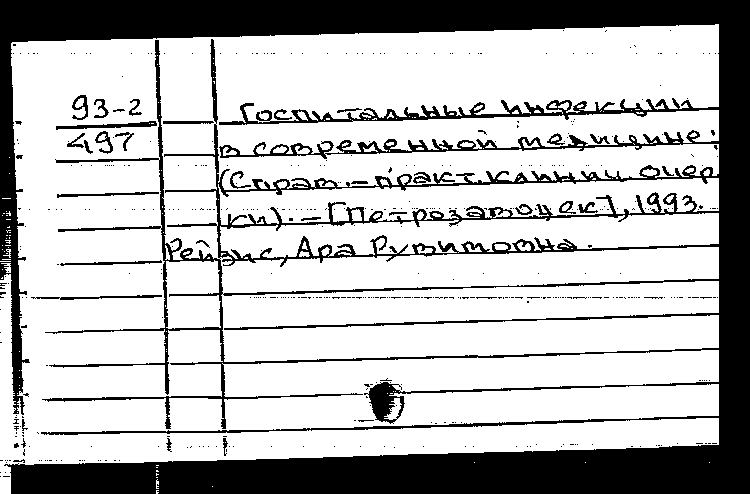 93-2
497
Госпитальные инфекции
в современной медицине:
(Справ.-практ. клинич. очер
ки). - [Петрозаводск], 1993.
Рейзис, Ара Рувимовна.